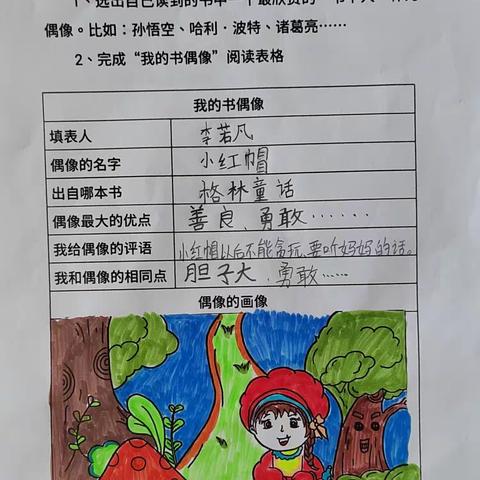 1、选出自己读到的书中一个最欣赏的“书中人”作为
偶像。比如：孙悟空、哈利·波特、诸葛亮……
2、完成“我的书偶像”阅读表格
我的书偶像
填表人 李若凡
偶像的名字 小红帽
出自哪本书 格林童话
偶像最大的优点 善良、勇敢······
我给偶像的评语 小红帽以后不能贪玩，要听妈妈的话。
我和偶像的相同点 胆子大、勇敢……
偶像的画像